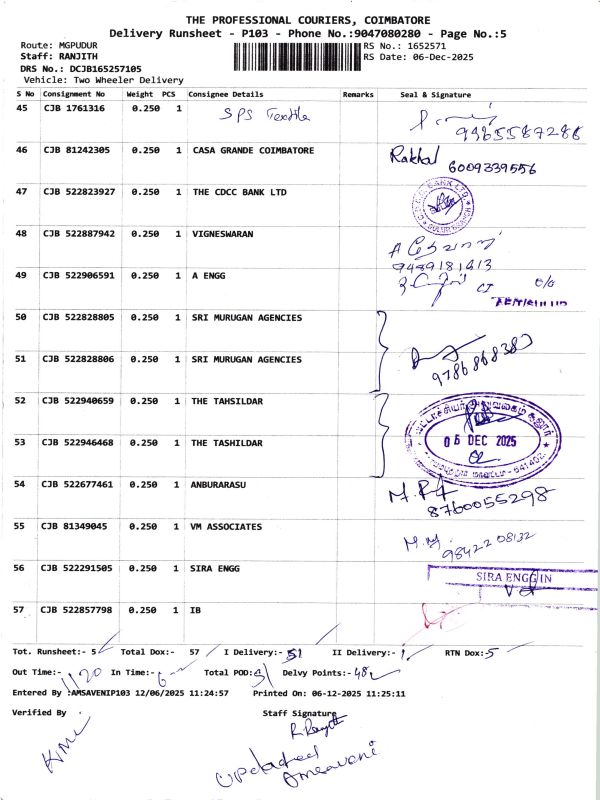 THE PROFESSIONAL COURIERS, COIMBATORE
Delivery Runsheet - P103 - Phone No.:9047080280 - Page No.:5
Route: MGPUDUR
RS No.: 1652571
Staff: RANJITH
RS Date: 06-Dec-2025
DRS No.: DCJB165257105
Vehicle: Two Wheeler Delivery
S No Consignment No Weight PCS Consignee Details Remarks Seal & Signature
45 CJB 1761316 0.250 1 SPS Textile 9965587288
46 CJB 81242305 0.250 1 CASA GRANDE COIMBATORE Rakhal 6009339556
47 CJB 522823927 0.250 1 THE CDCC BANK LTD
48 CJB 522887942 0.250 1 VIGNESWARAN 9489181413
49 CJB 522906591 0.250 1 A ENGG
50 CJB 522828805 0.250 1 SRI MURUGAN AGENCIES
51 CJB 522828806 0.250 1 SRI MURUGAN AGENCIES
52 CJB 522940659 0.250 1 THE TAHSILDAR
53 CJB 522946468 0.250 1 THE TASHILDAR 05 DEC 2025
54 CJB 522677461 0.250 1 ANBURARASU 8760055298
55 CJB 81349045 0.250 1 VM ASSOCIATES M.M. 98422 08132
56 CJB 522291505 0.250 1 SIRA ENGG SIRA ENGG IN
57 CJB 522857798 0.250 1 IB
Tot. Runsheet:- 5 Total Dox:- 57 I Delivery:- 51 II Delivery:- 1 RTN Dox:- 5
Out Time:- 1120 In Time:- 6 Total POD: 51 Delvy Points:- 48
Entered By :AMSAVENIP103 12/06/2025 11:24:57 Printed On: 06-12-2025 11:25:11
Verified By Staff Signature
Updated
Amsaveni